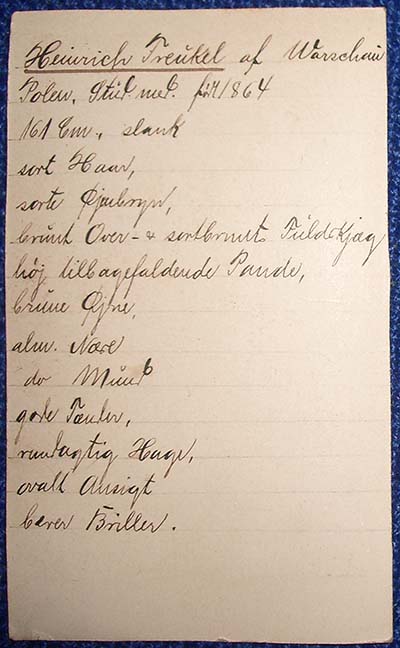 Heinrich Frenkel af Warschau
Polen, Stud. med. født 1864
161 Cm., slank
sort Haar,
sorte Øjnbryn,
brunt Over- & sortbrunt Fuldskjæg
høj tilbagefaldende Pande,
brune Øjne,
alm. Næse
do Mund
gode Tænder,
rundagtig Hage,
ovalt Ansigt
bærer Briller.